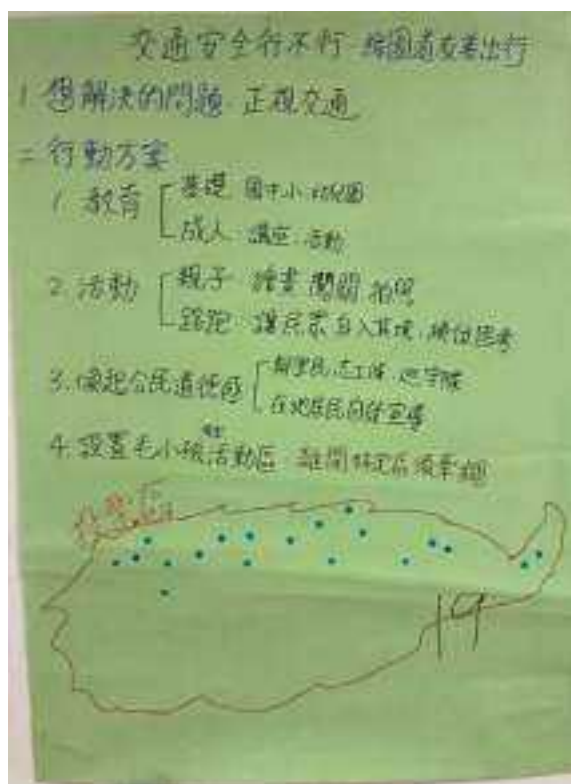 交通安全行不行
1 想解決的問題. 正視交通
二 行動方案
1 教育 基礎 國中小 幼兒園
成人 講座.活動
2. 活動 親子 繪畫 闖關 拍照
路跑 讓民眾身入其境,換位思考
3. 喚起公民道德感 志工隊
在地居民自組
4. 設置毛小孩活動區 離開特定區須牽繩
19